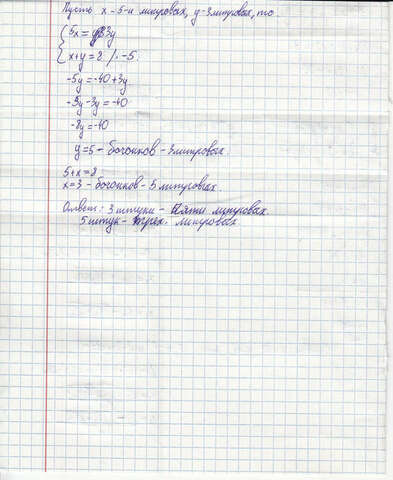 Пусть x - 5-и литровых, y - 3 литровых, то
5x = 3y
x+y = 8 /·-5
-5y = -40 + 3y
-5y - 3y = -40
-8y = -40
y = 5 - бочонков - 3 литровых.
5 + x = 8
x = 3 - бочонков - 5 литровых.
Ответ: 3 штуки - пяти литровых.
5 штук - трех литровых